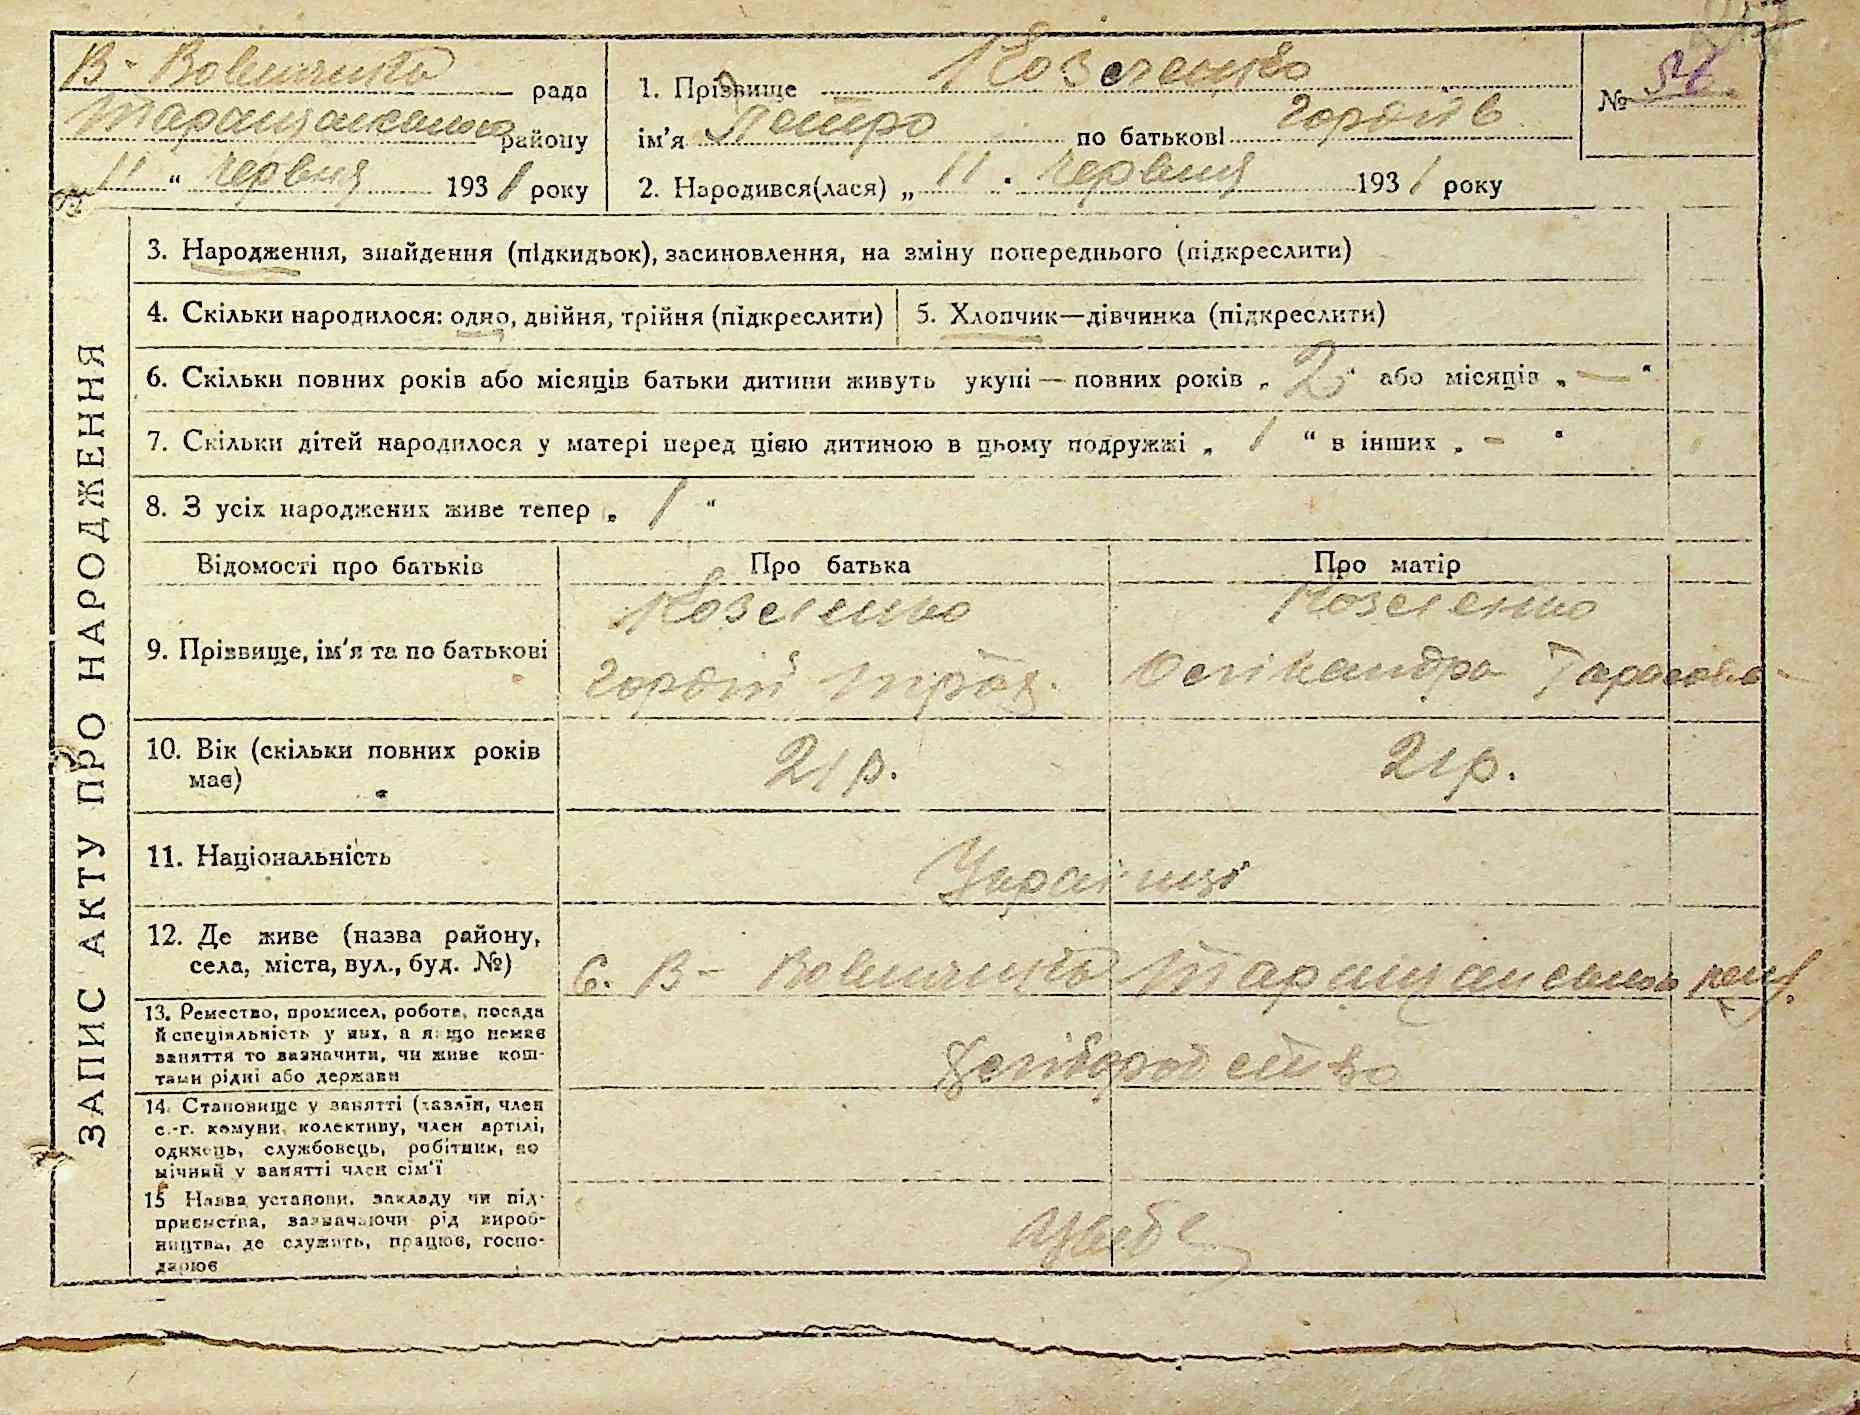 В- Вовнянка рада
Таращанського району
"11" червня 1931 року
1. Прізвище Козеленко
ім'я Петро по батькові Гордіїв
№
2. Народився(лася) „11" червня 1931 року
ЗАПИС АКТУ ПРО НАРОДЖЕННЯ
3. Народження, знайдення (підкидьок), засиновлення, на зміну попереднього (підкреслити)
4. Скільки народилося: одно, двійня, трійня (підкреслити)
5. Хлопчик—дівчинка (підкреслити)
6. Скільки повних років або місяців батьки дитини живуть укупі — повних років „2" або місяців „—"
7. Скільки дітей народилося у матері перед цією дитиною в цьому подружжі „1" в інших „-"
8. З усіх народжених живе тепер „1"
Відомості про батьків
Про батька
Про матір
9. Прізвище, ім'я та по батькові
Козеленко
Гордій
Козеленко
Олікандра Тарасовна
10. Вік (скільки повних років
має)
21 р.
21 р.
11. Національність
Українці
12. Де живе (назва району,
села, міста, вул., буд. №)
С. В- Вовнянка Таращанського
13. Ремество, промисел, робота, посада
й спеціяльність у них, а якщо немає
заняття то зазначити, чи живе кош-
тами рідні або держави
Хліборобство
14. Становище у занятті (хазяїн, член
с.-г. комуни, колективу, член артілі,
одинець, службовець, робітник, по
мічний у занятті член сім'ї
15 Назва установи, закладу чи під-
приємства, зазначаючи рід вироб-
ництва, де служить, працює, госпо-
дарює